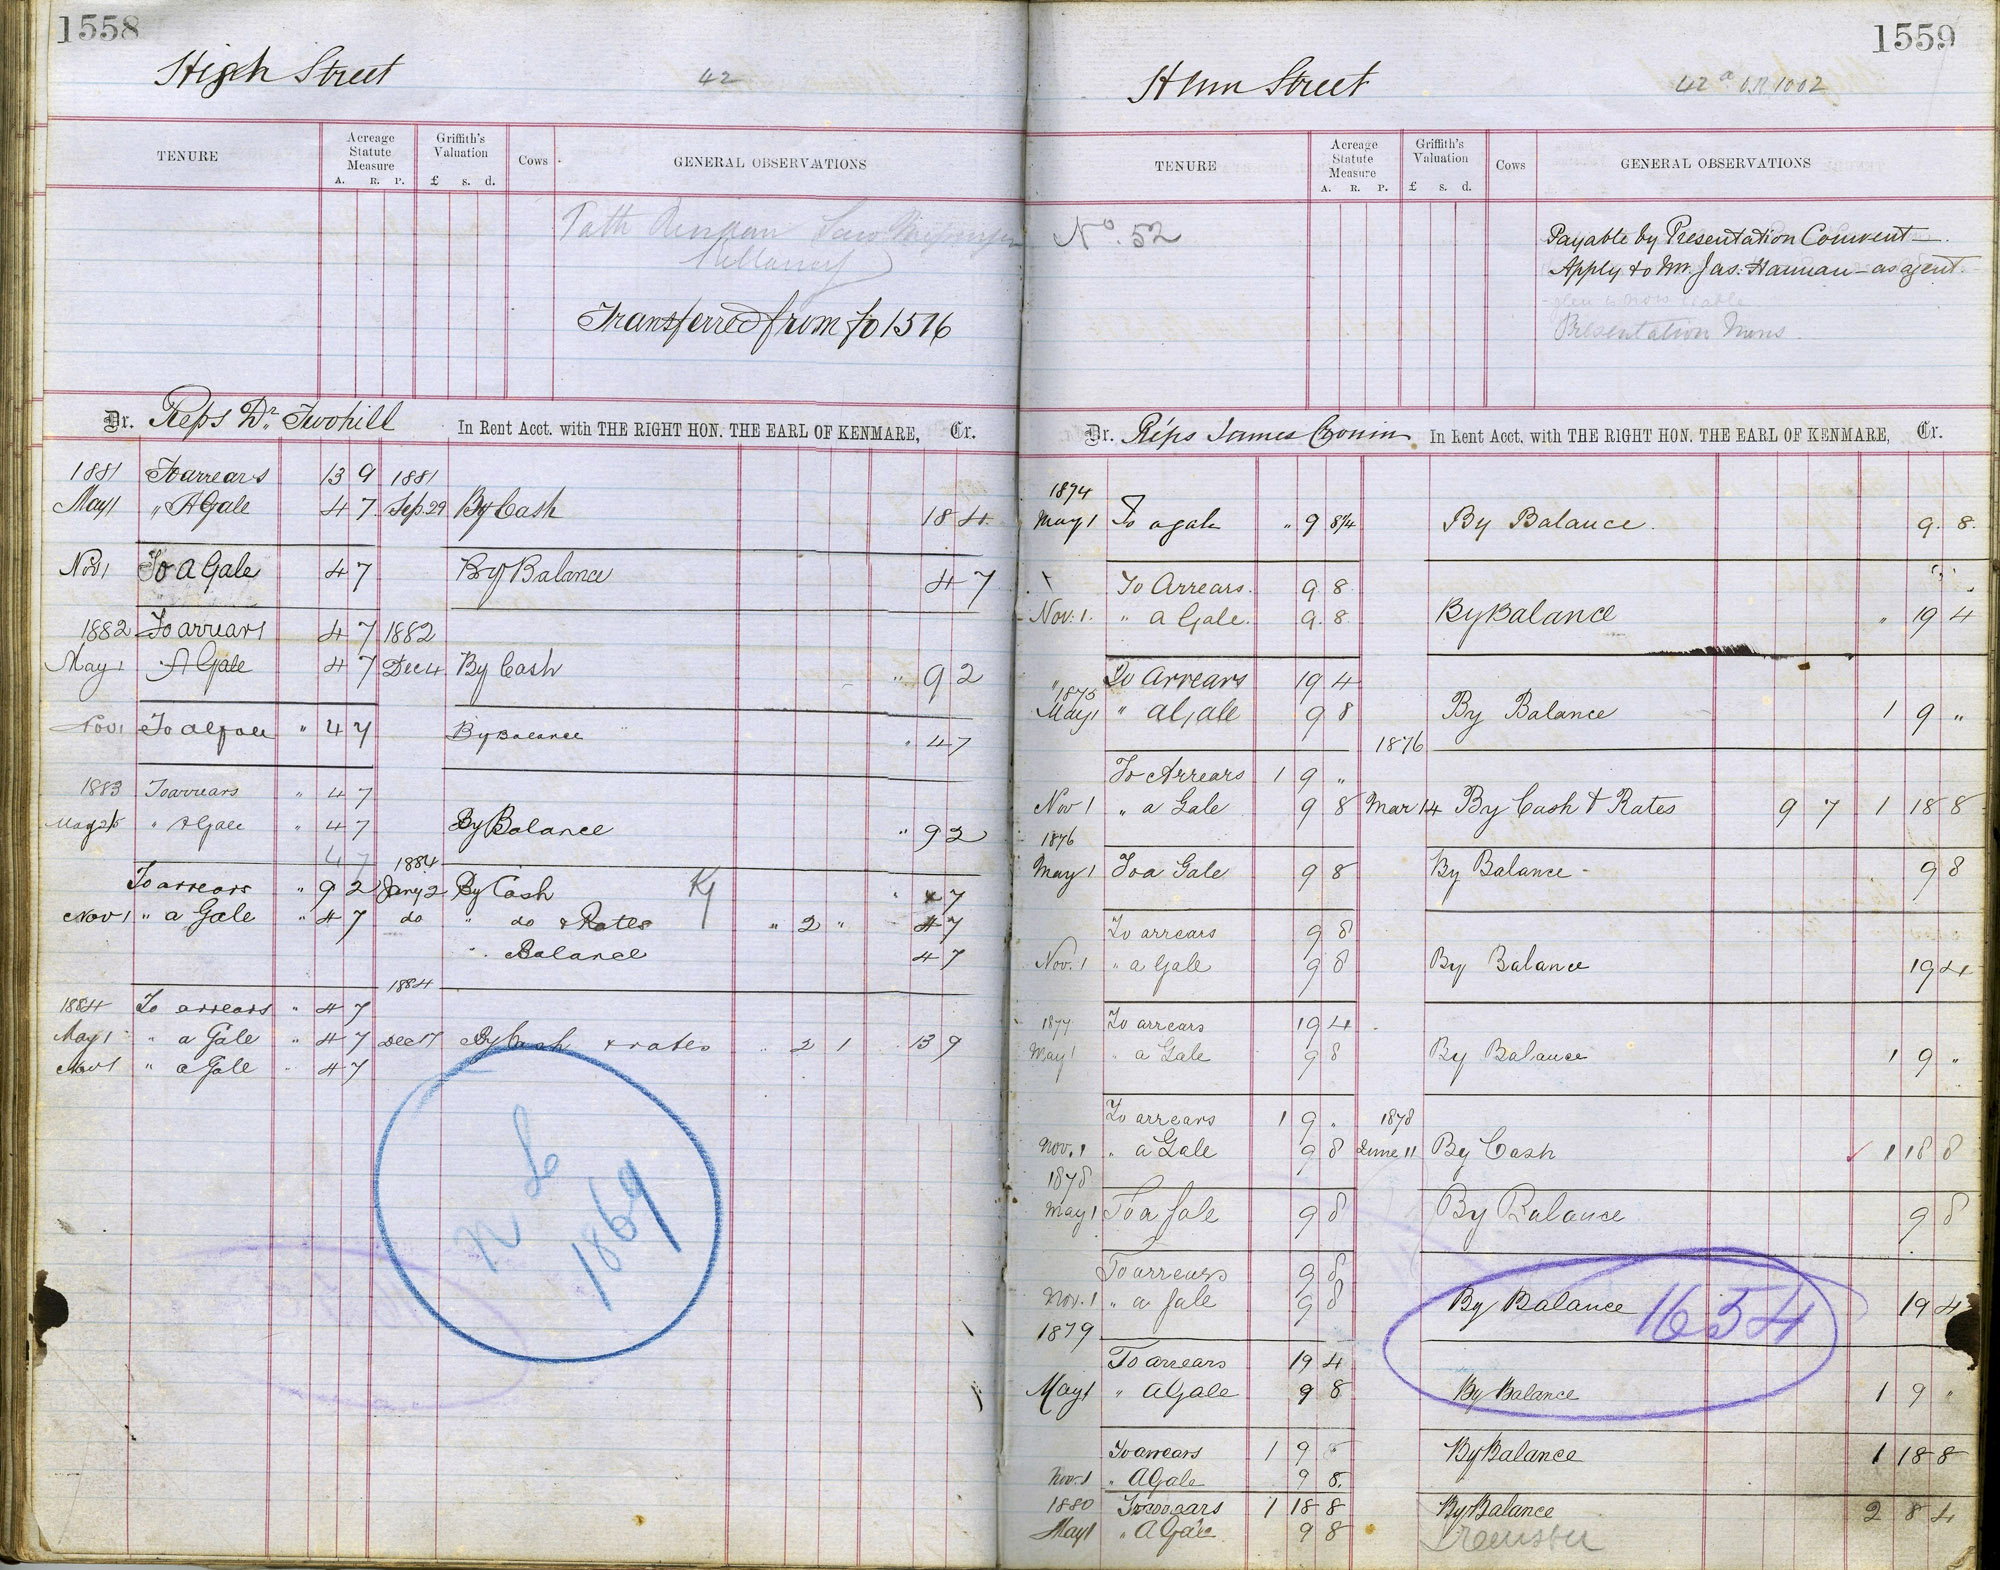 1558
High Street
42
TENURE
Acreage Statute Measure
A. R. P.
Griffith's Valuation
£ s. d.
Cows
GENERAL OBSERVATIONS
Transferred from fo 1516
Dr. Reps Dr. Twohill In Rent Acct. with THE RIGHT HON. THE EARL OF KENMARE, Cr.
1881 To arrears 13 9 1881
May 1 " A Gale 4 7 Sep. 29 By Cash 18 4
Nov 1 To A Gale 4 7 By Balance 4 7
1882 To arrears 4 7 1882
May 1 A Gale 4 7 Dec 4 By Cash " 9 2
Nov 1 To a Gale " 4 7 By Balance " 4 7
1883 To arrears " 4 7
May " A Gale " 4 7 By Balance " 9 2
4 7 1884
To arrears " 9 2 Jany 2 By Cash " 4 7
Nov 1 " a Gale " 4 7 do " do & Rates " 2 " 4 7
" Balance 4 7
1884
1884 To arrears " 4 7
May 1 " a Gale " 4 7 Dec 17 By Cash & rates " 2 1 " 13 9
Nov 1 " a Gale " 4 7
1869
1559
Henn Street
42a O.R. 1002
TENURE
Acreage Statute Measure
A. R. P.
Griffith's Valuation
£ s. d.
Cows
GENERAL OBSERVATIONS
No. 52
Payable by Presentation Convent —
Apply to Mr. Jas: Hannan — as agent
Presentation Nuns
Dr. Reps James Cronin In Rent Acct. with THE RIGHT HON. THE EARL OF KENMARE, Cr.
1874
May 1 To a gale " 9 8 1/4 By Balance. 9. 8.
To Arrears. 9 8
Nov. 1. " a Gale. 9. 8 By Balance " 19 4
" To Arrears 19 4
1875
May 1 " a Gale 9 8 By Balance 1 9 "
1876
To Arrears 1 9 "
Nov 1 " a Gale 9 8 Mar 14 By Cash & Rates 9 7 1 18 8
1876
May 1 To a Gale 9 8 By Balance - 9 8
To arrears 9 8
Nov. 1 " a Gale 9 8 By Balance 19 4
1877 To arrears 19 4
May 1 " a Gale 9 8 By Balance 1 9 "
To arrears 1 9 " 1878
Nov. 1 " a Gale 9 8 June 11 By Cash 1 18 8
1878
May 1 To a Gale 9 8 By Balance 9 8
To arrears 9 8
Nov. 1 " a Gale 9 8 By Balance 19 4
1654
1879
To arrears 19 4
May 1 " A Gale 9 8 By Balance 1 9 "
To arrears 1 9 By Balance 1 18 8
Nov. 1 " A Gale 9 8.
1880 To arrears 1 18 8 By Balance 2 8 4
May 1 " A Gale 9 8